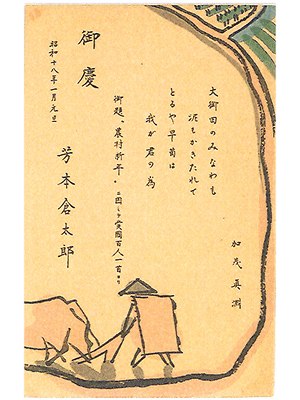 加茂真淵
大御田のみなわも
泥もかきたれて
とるや早苗は
我が君の為
御題、農村新年。ニ因ミテ愛國百人一首ヨリ
御慶
昭和十八年一月元旦
芳本倉太郎